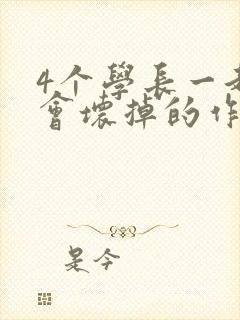 4个學長一
會壞掉的作
是今